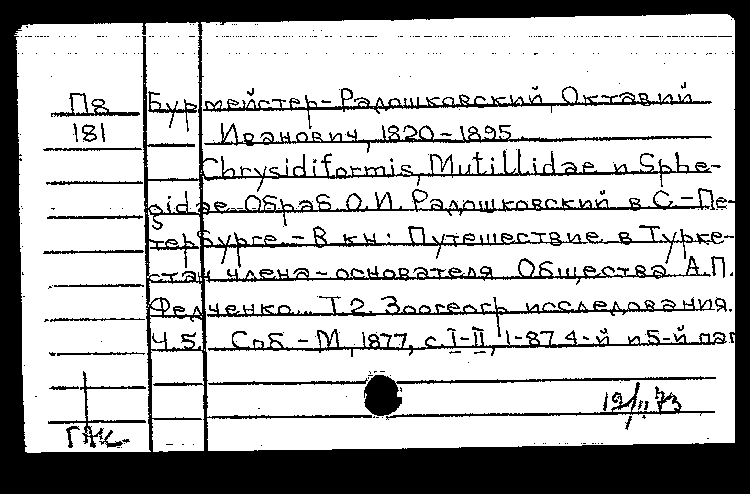 Пя
181
Бурмейстер-Радошковский, Октавий
Иванович, 1820-1895.
Chrysidiformis, Mutillidae и Sphe-
gidae. Обраб. О.И. Радошковский в С.-Пе-
тербурге. - В кн: Путешествие в Турке-
стан члена-основателя Общества А.П.
Федченко... Т.2. Зоогеогр. исследования.
Ч.5. Спб. - М, 1877, с. I-II, 1-87 4-й и 5-й паг
12/II 73
ГАК